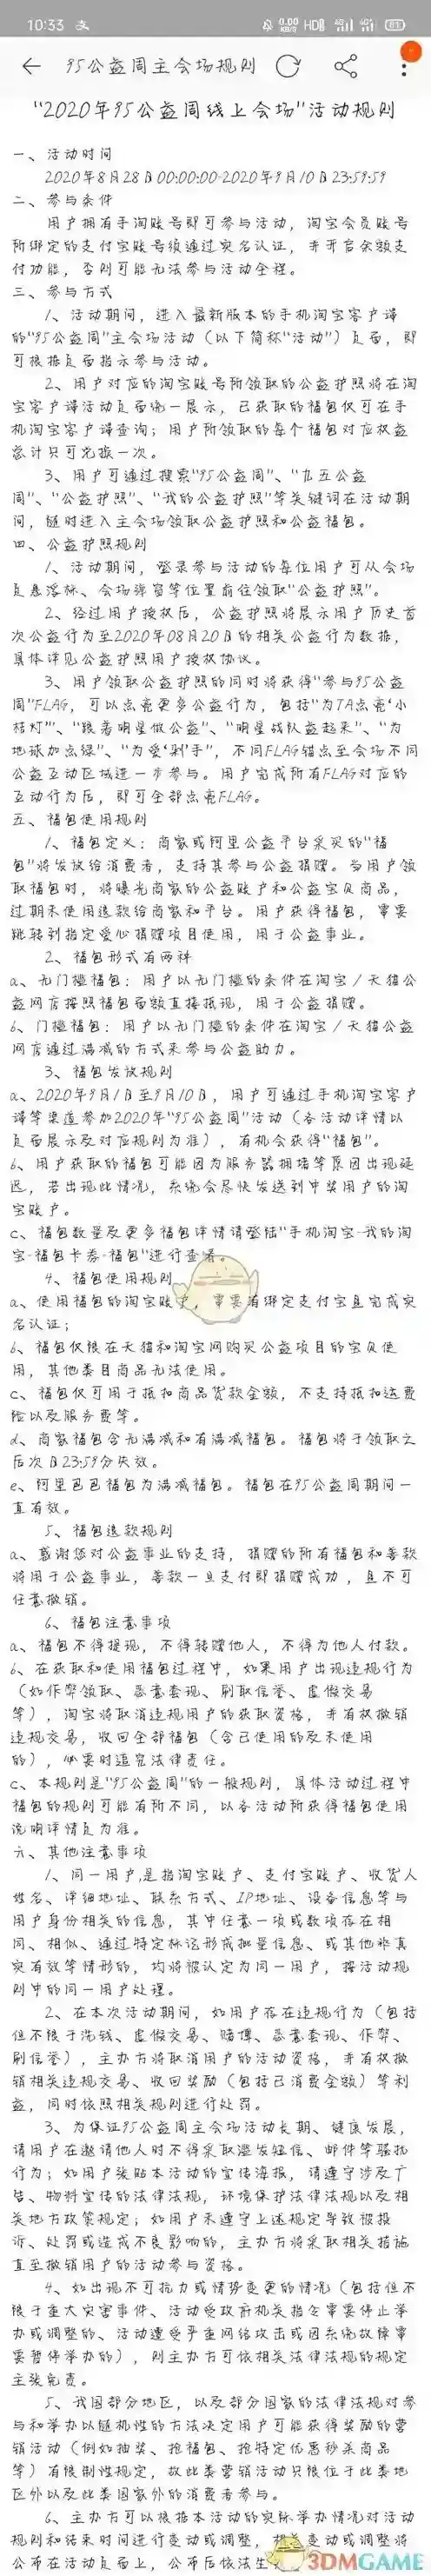 10:33
0.00
KB/S
HD
4G
4G
95公益周主会场规则
“2020年95公益周线上会场”活动规则
一、活动时间
2020年8月28日00:00:00-2020年9月10日23:59:59
二、参与条件
用户拥有手淘账号即可参与活动，淘宝会员账号
所绑定的支付宝账号须通过实名认证，并开启余额支
付功能，否则可能无法参与活动全程。
三、参与方式
1、活动期间，进入最新版本的手机淘宝客户端
的“95公益周”主会场活动（以下简称“活动”）页面，即
可根据页面指示参与活动。
2、用户对应的淘宝账号所领取的公益护照将在淘
宝客户端活动页面统一展示，已获取的福包仅可在手
机淘宝客户端查询；用户所领取的每个福包对应权益
总计只可兑换一次。
3、用户可通过搜索“95公益周”、“九五公益
周”、“公益护照”、“我的公益护照”等关键词在活动期
间，随时进入主会场领取公益护照和公益福包。
四、公益护照规则
1、活动期间，登录参与活动的每位用户可从会场
页悬浮标、会场弹窗等位置前往领取“公益护照”。
2、经过用户授权后，公益护照将展示用户历史首
次公益行为至2020年08月20日的相关公益行为数据，
具体详见公益护照用户授权协议。
3、用户领取公益护照的同时将获得“参与95公益
周”FLAG，可以点亮更多公益行为，包括“为TA点亮‘小
桔灯’”、“跟着明星做公益”、“明星战队益起来”、“为
地球加点绿”、“为爱‘剁’手”，不同FLAG锚点至会场不同
公益互动区域进一步参与。用户完成所有FLAG对应的
互动行为后，即可全部点亮FLAG。
五、福包使用规则
1、福包定义：商家或阿里公益平台采买的“福
包”将发放给消费者，支持其参与公益捐赠。当用户领
取福包时，将曝光商家的公益账户和公益宝贝商品，
过期未使用退款给商家和平台。用户获得福包，需要
跳转到指定爱心捐赠项目使用，用于公益事业。
2、福包形式有两种
a、无门槛福包：用户以无门槛的条件在淘宝／天猫公
益网店按照福包面额直接抵现，用于公益捐赠。
b、门槛福包：用户以无门槛的条件在淘宝／天猫公益
网店通过满减的方式来参与公益助力。
3、福包发放规则
a、2020年9月1日至9月10日，用户可通过手机淘宝客户
端等渠道参加2020年“95公益周”活动（各活动详情以
页面展示及对应规则为准），有机会获得“福包”。
b、用户获取的福包可能因为服务器拥堵等原因出现延
迟，若出现此情况，系统会尽快发送到中奖用户的淘
宝账户。
c、福包数量及更多福包详情请登陆“手机淘宝-我的淘
宝-福包卡券-福包”进行查看。
4、福包使用规则
a、使用福包的淘宝账户，需要有绑定支付宝且完成实
名认证；
b、福包仅限在天猫和淘宝网购买公益项目的宝贝使
用，其他类目商品无法使用。
c、福包仅可用于抵扣商品货款金额，不支持抵扣运费
险以及服务费等。
d、商家福包含无满减和有满减福包。福包将于领取之
后次日23:59分失效。
e、阿里巴巴福包为满减福包。福包在95公益周期间一
直有效。
5、福包退款规则
a、感谢您对公益事业的支持，捐赠的所有福包和善款
将用于公益事业，善款一旦支付即捐赠成功，且不可
任意撤销。
6、福包注意事项
a、福包不得提现，不得转赠他人，不得为他人付款。
b、在获取和使用福包过程中，如果用户出现违规行为
（如作弊领取、恶意套现、刷取信誉、虚假交易
等），淘宝将取消违规用户的获取资格，并有权撤销
违规交易，收回全部福包（含已使用的及未使用
的），必要时追究法律责任。
c、本规则是“95公益周”的一般规则，具体活动过程中
福包的规则可能有所不同，以各活动所获得福包使用
说明详情页为准。
六、其他注意事项
1、同一用户,是指淘宝账户、支付宝账户、收货人
姓名、详细地址、联系方式、IP地址、设备信息等与
用户身份相关的信息，其中任意一项或数项存在相
同、相似、通过特定标识形成批量信息、或其他非真
实有效等情形的，均将被认定为同一用户，按活动规
则中的同一用户处理。
2、在本次活动期间，如用户存在违规行为（包括
但不限于洗钱、虚假交易、赌博、恶意套现、作弊、
刷信誉），主办方将取消用户的活动资格，并有权撤
销相关违规交易、收回奖励（包括已消费金额）等利
益，同时依照相关规则进行处罚。
3、为保证95公益周主会场活动长期、健康发展，
请用户在邀请他人时不得采取滥发短信、邮件等骚扰
行为；如用户张贴本活动的宣传海报，请遵守涉及广
告、物料宣传的法律法规，环境保护法律法规以及相
关地方政策规定；如用户未遵守上述规定导致被投
诉、处罚或造成不良影响的，主办方将采取相关措施
直至撤销用户的活动参与资格。
4、如出现不可抗力或情势变更的情况（包括但不
限于重大灾害事件、活动受政府机关指令需要停止举
办或调整的、活动遭受严重网络攻击或因系统故障需
要暂停举办的），则主办方可依相关法律法规的规定
主张免责。
5、我国部分地区，以及部分国家的法律法规对参
与和举办以随机性的方法决定用户可能获得奖励的营
销活动（例如抽奖、抢福包、抢特定优惠秒杀商品
等）有限制性规定，故此类营销活动只限位于此类地
区外以及此类国家外的消费者参与。
6、主办方可以根据本活动的实际举办情况对活动
规则和结束时间进行变动或调整，相关变动或调整将
公布在活动页面上，公布后依法生
3DMGAME